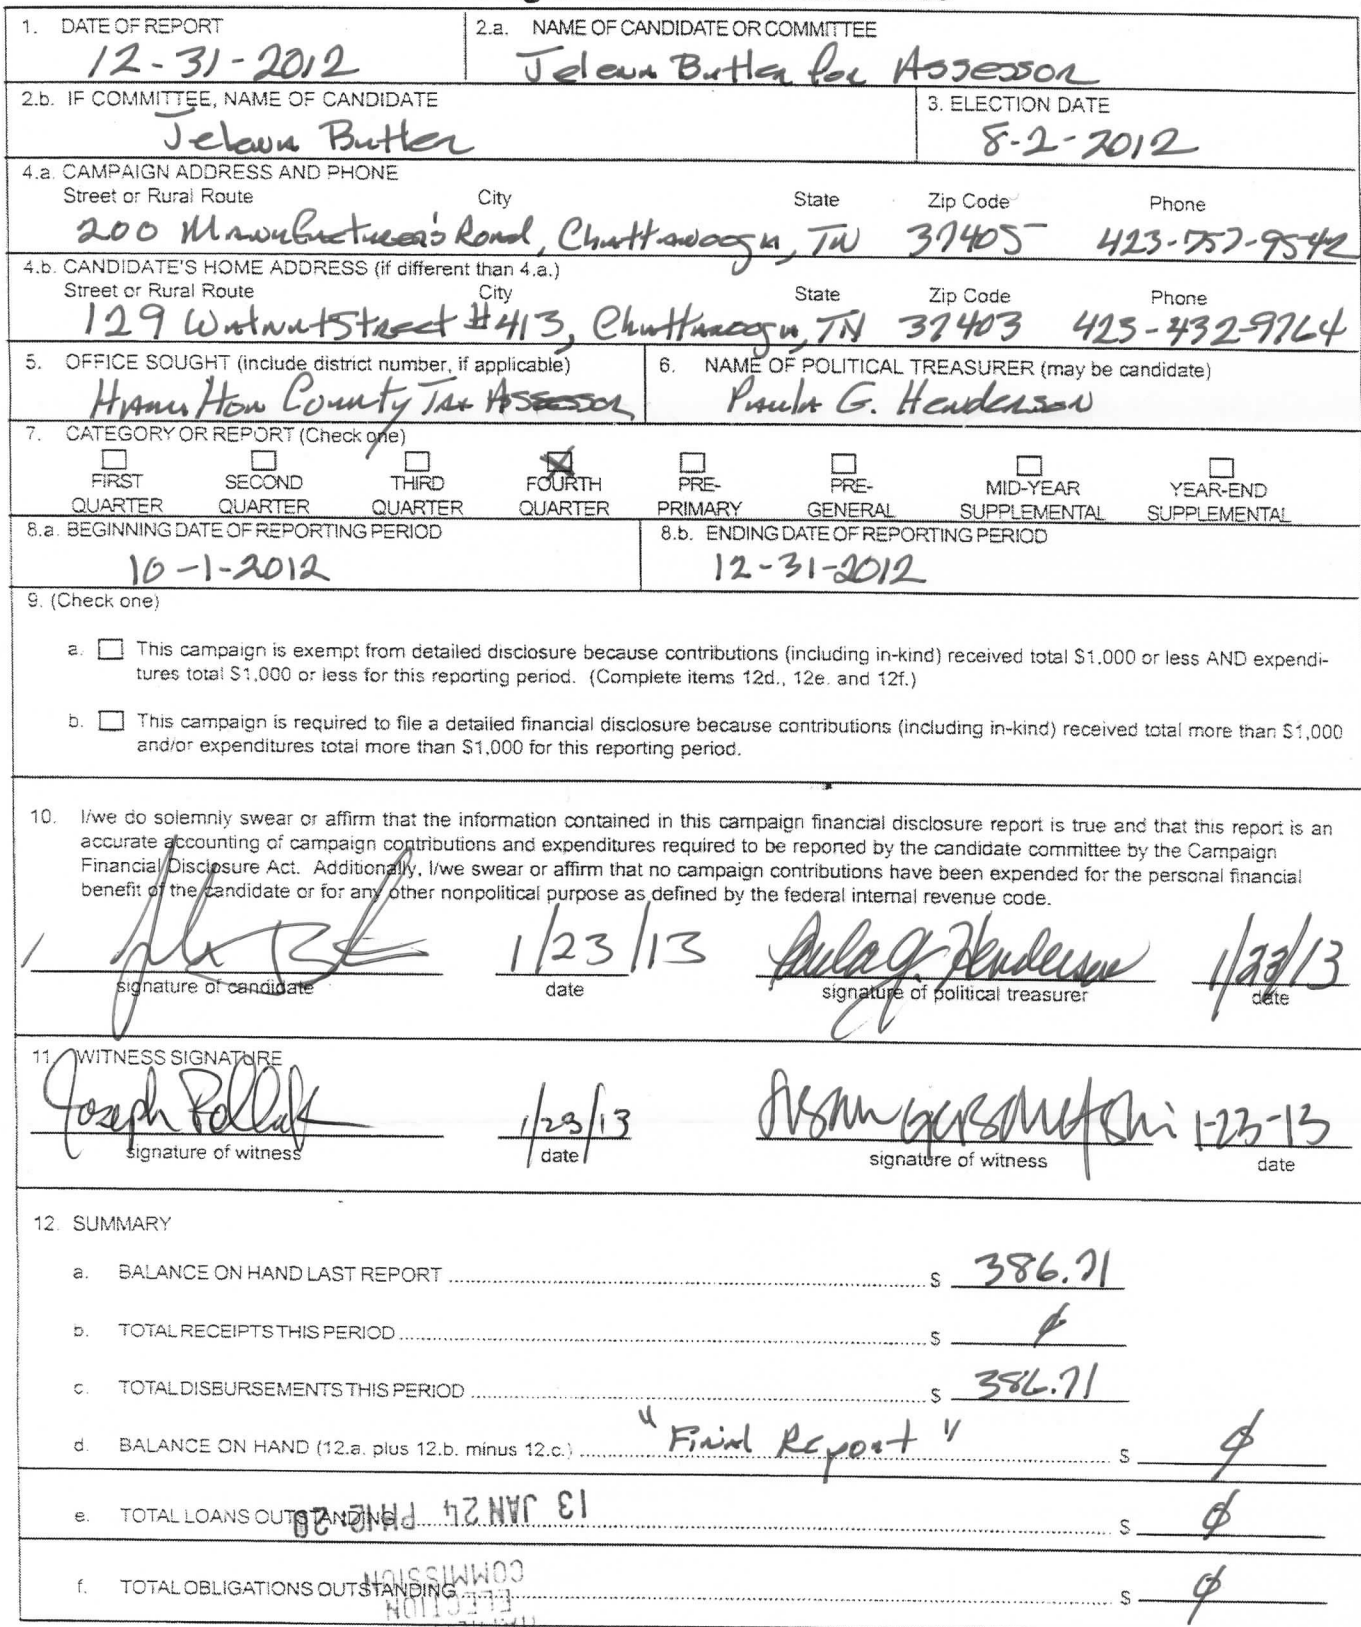 1. DATE OF REPORT
12-31-2012
2.a. NAME OF CANDIDATE OR COMMITTEE
Jelaun Butler for Assessor
2.b. IF COMMITTEE, NAME OF CANDIDATE
Jelaun Butler
3. ELECTION DATE
8-2-2012
4.a. CAMPAIGN ADDRESS AND PHONE
Street or Rural Route City State Zip Code Phone
200 Manufacturer's Road, Chattanooga, TN 37405 423-757-9542
4.b. CANDIDATE'S HOME ADDRESS (if different than 4.a.)
Street or Rural Route City State Zip Code Phone
129 Walnut Street #413, Chattanooga, TN 37403 423-432-9764
5. OFFICE SOUGHT (include district number, if applicable)
Hamilton County Tax Assessor
6. NAME OF POLITICAL TREASURER (may be candidate)
Paula G. Henderson
7. CATEGORY OR REPORT (Check one)
FIRST QUARTER
SECOND QUARTER
THIRD QUARTER
FOURTH QUARTER
PRE-PRIMARY
PRE-GENERAL
MID-YEAR SUPPLEMENTAL
YEAR-END SUPPLEMENTAL
8.a. BEGINNING DATE OF REPORTING PERIOD
10-1-2012
8.b. ENDING DATE OF REPORTING PERIOD
12-31-2012
9. (Check one)
a. This campaign is exempt from detailed disclosure because contributions (including in-kind) received total $1,000 or less AND expendi-
tures total $1,000 or less for this reporting period. (Complete items 12d., 12e. and 12f.)
b. This campaign is required to file a detailed financial disclosure because contributions (including in-kind) received total more than $1,000
and/or expenditures total more than $1,000 for this reporting period.
10. I/we do solemnly swear or affirm that the information contained in this campaign financial disclosure report is true and that this report is an
accurate accounting of campaign contributions and expenditures required to be reported by the candidate committee by the Campaign
Financial Disclosure Act. Additionally, I/we swear or affirm that no campaign contributions have been expended for the personal financial
benefit of the candidate or for any other nonpolitical purpose as defined by the federal internal revenue code.
1/23/13 Paula G. Henderson 1/23/13
signature of candidate date signature of political treasurer date
11. WITNESS SIGNATURE
Joseph Pollak 1/23/13 1-23-13
signature of witness date signature of witness date
12. SUMMARY
a. BALANCE ON HAND LAST REPORT $ 386.71
b. TOTAL RECEIPTS THIS PERIOD $ ∅
c. TOTAL DISBURSEMENTS THIS PERIOD $ 386.71
d. BALANCE ON HAND (12.a. plus 12.b. minus 12.c.) "Final Report" $ ∅
e. TOTAL LOANS OUTSTANDING $ ∅
13 JAN 24 PM12:20
f. TOTAL OBLIGATIONS OUTSTANDING $ ∅
ELECTION
COMMISSION